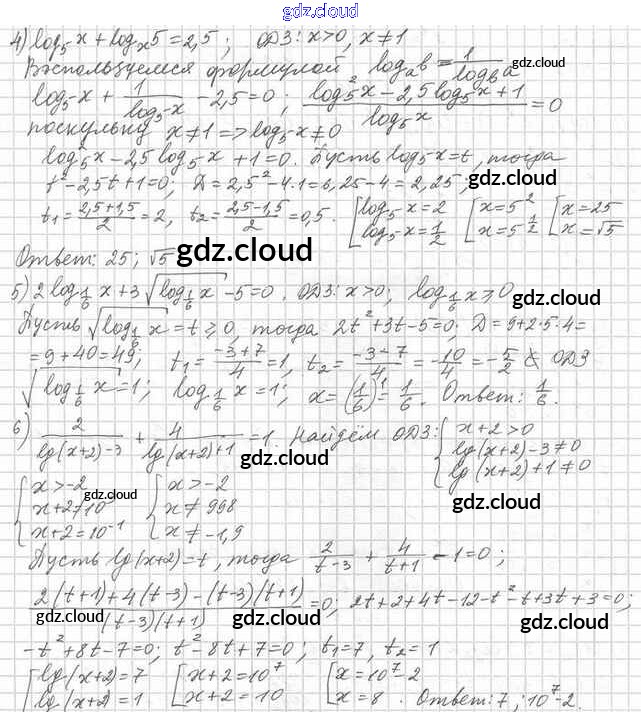 gdz.cloud
4) log₅x + logₓ5 = 2,5 ; ОДЗ: x>0, x≠1
Воспользуемся формулой logₐb = 1/log_b a
log₅x + 1/log₅x - 2,5 = 0 ; (log₅²x - 2,5log₅x + 1)/log₅x = 0
поскольку x≠1 => log₅x≠0
log₅²x - 2,5log₅x + 1 = 0. Пусть log₅x = t, тогда
t² - 2,5t + 1 = 0; D = 2,5² - 4·1 = 6,25 - 4 = 2,25;
gdz.cloud
t₁ = (2,5+1,5)/2 = 2, t₂ = (2,5-1,5)/2 = 0,5. [log₅x = 2 [x = 5² [x = 25
log₅x = 1/2 x = 5^(1/2) x = √5
Ответ: 25; √5
gdz.cloud
5) 2log_(1/6) x + 3√(log_(1/6) x) - 5 = 0. ОДЗ: x>0; log_(1/6) x ≥ 0
gdz.cloud
Пусть √(log_(1/6) x) = t ≥ 0, тогда 2t² + 3t - 5 = 0; D = 9 + 2·5·4 =
= 9 + 40 = 49; t₁ = (-3+7)/4 = 1, t₂ = (-3-7)/4 = -10/4 = -5/2 ∉ ОДЗ
√(log_(1/6) x) = 1; log_(1/6) x = 1; x = (1/6)¹ = 1/6. Ответ: 1/6.
6) 2/(lg(x+2)-3) + 4/(lg(x+2)+1) = 1. Найдём ОДЗ: {x+2>0
lg(x+2)-3≠0
lg(x+2)+1≠0
gdz.cloud
gdz.cloud
{x>-2 {x>-2
x+2≠10³ x≠998
x+2=10⁻¹ x≠-1,9
gdz.cloud
Пусть lg(x+2) = t, тогда 2/(t-3) + 4/(t+1) - 1 = 0;
(2(t+1)+4(t-3)-(t-3)(t+1))/((t-3)(t+1)) = 0; 2t+2+4t-12-t²-t+3t+3=0;
gdz.cloud
gdz.cloud
gdz.cloud
-t²+8t-7=0; t²-8t+7=0; t₁=7, t₂=1
[lg(x+2)=7 [x+2=10⁷ [x=10⁷-2
lg(x+2)=1 x+2=10 x=8. Ответ: 7; 10⁷-2.